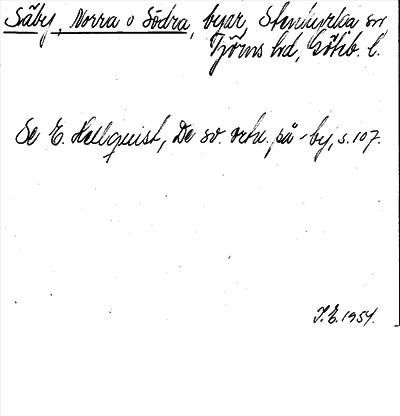 Säby, Norra o Södra, byar, Stenkyrka sn
Tjörns hd, Göteb. l.
Se E. Hellquist, De sv. ortn. på -by, s. 107.
I.E. 1954.